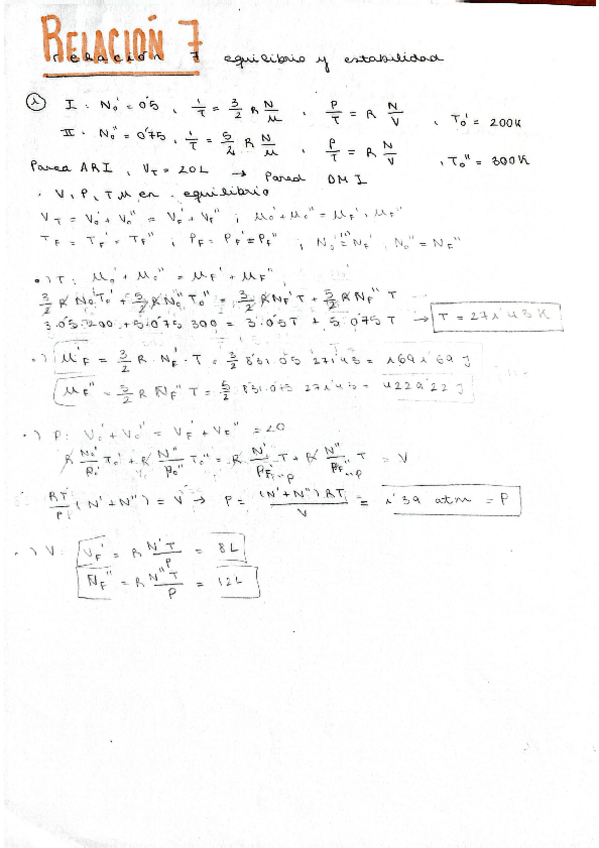 RELACIÓN 7
relación 7 equilibrio y estabilidad
① I : N₀' = 0'5 , 1/T = 3/2 R N/μ , P/T = R N/V , T₀' = 200K
II : N₀'' = 0'75 , 1/T = 5/2 R N/μ , P/T = R N/V , T₀'' = 300K
Pared ARI , V_T = 20L → Pared DMI
· V, P, T, μ en equilibrio
V_T = V₀' + V₀'' = V_F' + V_F'' ; μ₀' + μ₀'' = μ_F' + μ_F''
T_F = T_F' = T_F'' ; P_F = P_F' = P_F'' ; N₀' = N_F' , N₀'' = N_F''
·) T : μ₀' + μ₀'' = μ_F' + μ_F''
3/2 R N₀' T₀' + 5/2 R N₀'' T₀'' = 3/2 R N_F' T + 5/2 R N_F'' T
3·0'5·200 + 5·0'75 300 = 3·0'5T + 5·0'75T → T = 271'43 K
·) μ_F' = 3/2 R · N_F' · T = 3/2 8'31·0'5 271'43 = 1691'69 J
μ_F'' = 5/2 R N_F'' T = 5/2 8'31·0'75 271'43 = 4229'22 J
·) P : V₀' + V₀'' = V_F' + V_F'' = 20
R N₀'/P₀' T₀' + R N''/P₀'' T₀'' = R N'/P_F'=P T + R N''/P_F''=P T = V
RT/P (N' + N'') = V → P = (N' + N'')RT/V = 1'39 atm = P
·) V : V_F' = R N'T/P = 8L
N_F'' = R N''T/P = 12L